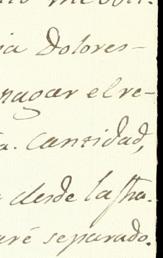 ia Dolores-
nagar el re-
a. cantidad,
desde la fha.
aré separado.